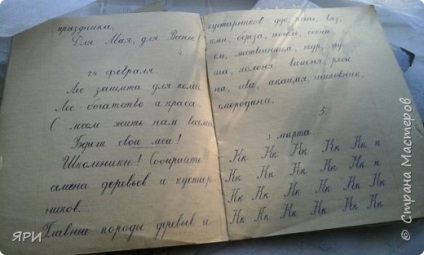 праздника,
Для Мая, для Весны
24 февраля.
Лес защита для поли
Лес богатство и краса.
С лесом жить нам всем
Береги свои леса!
Школьники! Собирайте
семена деревьев и кустар
ников.
Главные породы деревьев и
кустарников дуб,
клён, берёза,
лиственница, кедр, гру
ша, яблоня вишня, ряби
на, ива, акация, шиповник,
смородина.
5
1 марта
Кк Кк Кк Кк Кк к
Кк Кк Кк Кк Кк
Кк Кк Кк Кк Кк
Кк Кк Кк Кк Кк Кк
ЯРИ
© Страна Мастеров